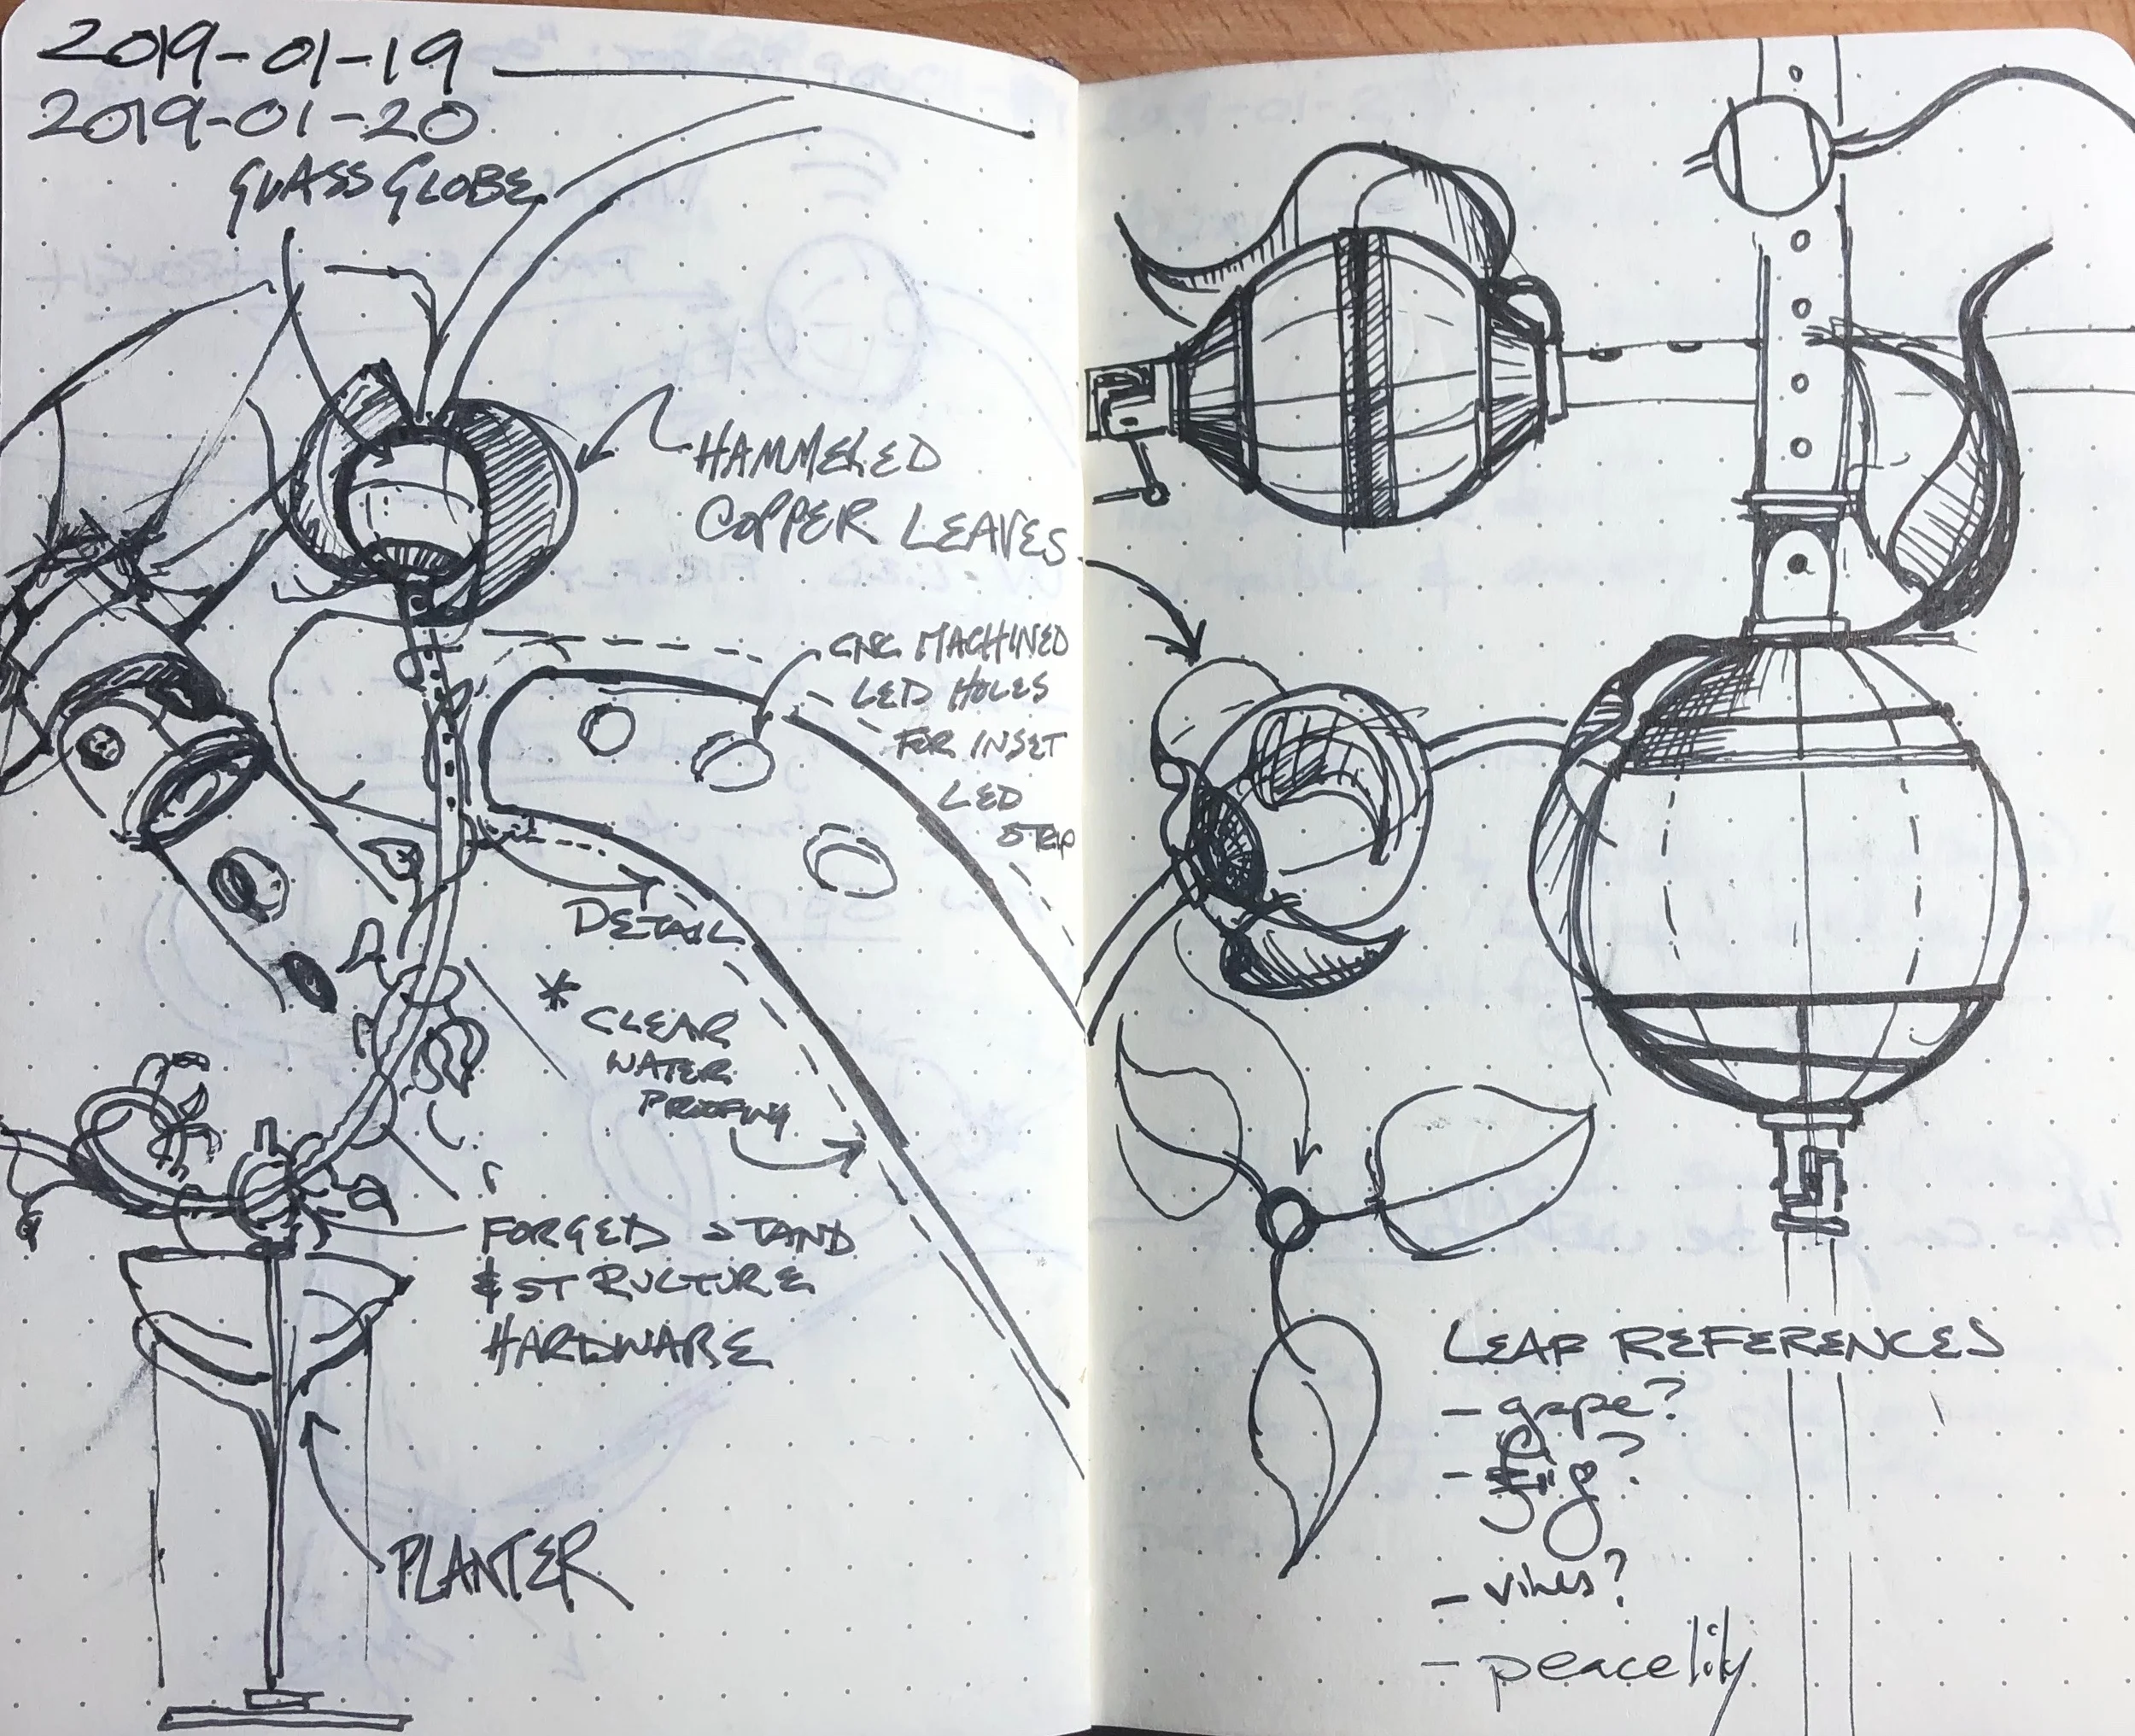 2019-01-19
2019-01-20
GLASS GLOBE
HAMMERED
COPPER LEAVES
CNC MACHINED
LED HOLES
FOR INSET
LED
STRIP
DETAIL
* CLEAR
WATER
PROOFING
FORGED STAND
& STRUCTURE
HARDWARE
PLANTER
LEAF REFERENCES
- gape?
- fig?
- vines?
- peace lily